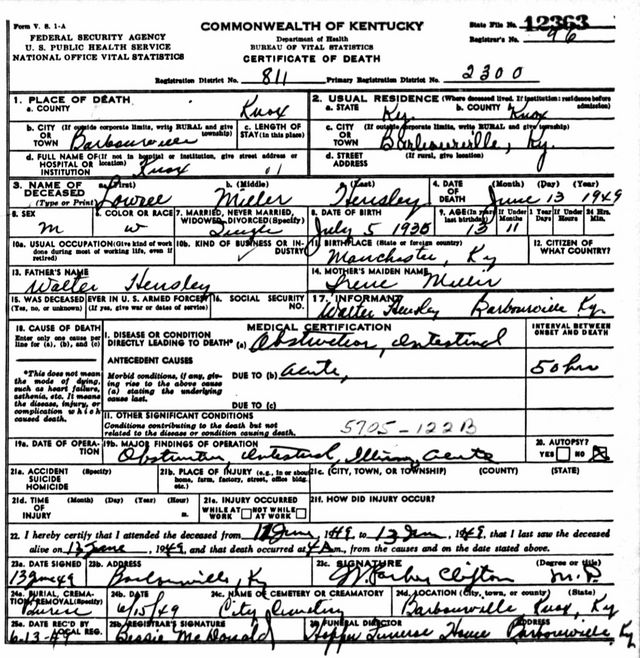 Form V. S. 1-A
COMMONWEALTH OF KENTUCKY
State File No. 12363
FEDERAL SECURITY AGENCY
Department of Health
Registrar's No. 96
U. S. PUBLIC HEALTH SERVICE
BUREAU OF VITAL STATISTICS
NATIONAL OFFICE VITAL STATISTICS
CERTIFICATE OF DEATH
Registration District No. 811 Primary Registration District No. 2300
1. PLACE OF DEATH
a. COUNTY Knox
2. USUAL RESIDENCE (Where deceased lived. If institution: residence before admission)
a. STATE Ky. b. COUNTY Knox
b. CITY (If outside corporate limits, write RURAL and give township) OR TOWN Barbourville
c. LENGTH OF STAY (in this place)
c. CITY (If outside corporate limits, write RURAL and give township) OR TOWN Barbourville, Ky.
d. FULL NAME OF (If not in hospital or institution, give street address or location) HOSPITAL OR INSTITUTION Knox
d. STREET ADDRESS (If rural, give location)
3. NAME OF DECEASED (Type or Print) a. (First) b. (Middle) Miller (Last) Hensley
4. DATE OF DEATH (Month) (Day) (Year) June 13 1949
5. SEX M
6. COLOR OR RACE W
7. MARRIED, NEVER MARRIED, WIDOWED, DIVORCED (Specify) Single
8. DATE OF BIRTH July 5 1935
9. AGE (In years last birthday) 13 If Under 1 Year 11 If Under 24 Hrs. Hours Min.
10a. USUAL OCCUPATION (Give kind of work done during most of working life, even if retired)
10b. KIND OF BUSINESS OR INDUSTRY
11. BIRTHPLACE (State or foreign country) Manchester, Ky
12. CITIZEN OF WHAT COUNTRY?
13. FATHER'S NAME Walter Hensley
14. MOTHER'S MAIDEN NAME Irene
15. WAS DECEASED EVER IN U. S. ARMED FORCES? (Yes, no, or unknown) (If yes, give war or dates of service)
16. SOCIAL SECURITY NO.
17. INFORMANT Walter Hensley Barbourville Ky.
18. CAUSE OF DEATH
Enter only one cause per line for (a), (b), and (c)
MEDICAL CERTIFICATION
INTERVAL BETWEEN ONSET AND DEATH
I. DISEASE OR CONDITION DIRECTLY LEADING TO DEATH* (a) Obstruction, intestinal
*This does not mean the mode of dying, such as heart failure, asthenia, etc. It means the disease, injury, or complication which caused death.
ANTECEDENT CAUSES
Morbid conditions, if any, giving rise to the above cause (a) stating the underlying cause last.
DUE TO (b) acute, 50 hrs
DUE TO (c)
II. OTHER SIGNIFICANT CONDITIONS
Conditions contributing to the death but not related to the disease or condition causing death.
5705-122B
19a. DATE OF OPERATION
19b. MAJOR FINDINGS OF OPERATION Obstruction, intestinal, acute
20. AUTOPSY? YES NO
21a. ACCIDENT SUICIDE HOMICIDE (Specify)
21b. PLACE OF INJURY (e.g., in or about home, farm, factory, street, office bldg. etc.)
21c. (CITY, TOWN, OR TOWNSHIP) (COUNTY) (STATE)
21d. TIME OF INJURY (Month) (Day) (Year) (Hour) m.
21e. INJURY OCCURRED WHILE AT WORK NOT WHILE AT WORK
21f. HOW DID INJURY OCCUR?
22. I hereby certify that I attended the deceased from June, 1949 to 13 June, 1949, that I last saw the deceased
alive on 13 June, 1949, and that death occurred at 4 A m., from the causes and on the date stated above.
23a. DATE SIGNED 13 June 49
23b. ADDRESS Barbourville, Ky
23c. SIGNATURE (Degree or title) Clifton M.D.
24a. BURIAL, CREMATION, REMOVAL (Specify) Burial
24b. DATE 6/15/49
24c. NAME OF CEMETERY OR CREMATORY City Cemetery
24d. LOCATION (City, town, or county) (State) Barbourville Knox, Ky
25a. DATE REC'D BY LOCAL REG. 6-13-49
25b. REGISTRAR'S SIGNATURE Bessie McDonald
FUNERAL DIRECTOR Hopper Funeral Home Barbourville, Ky.